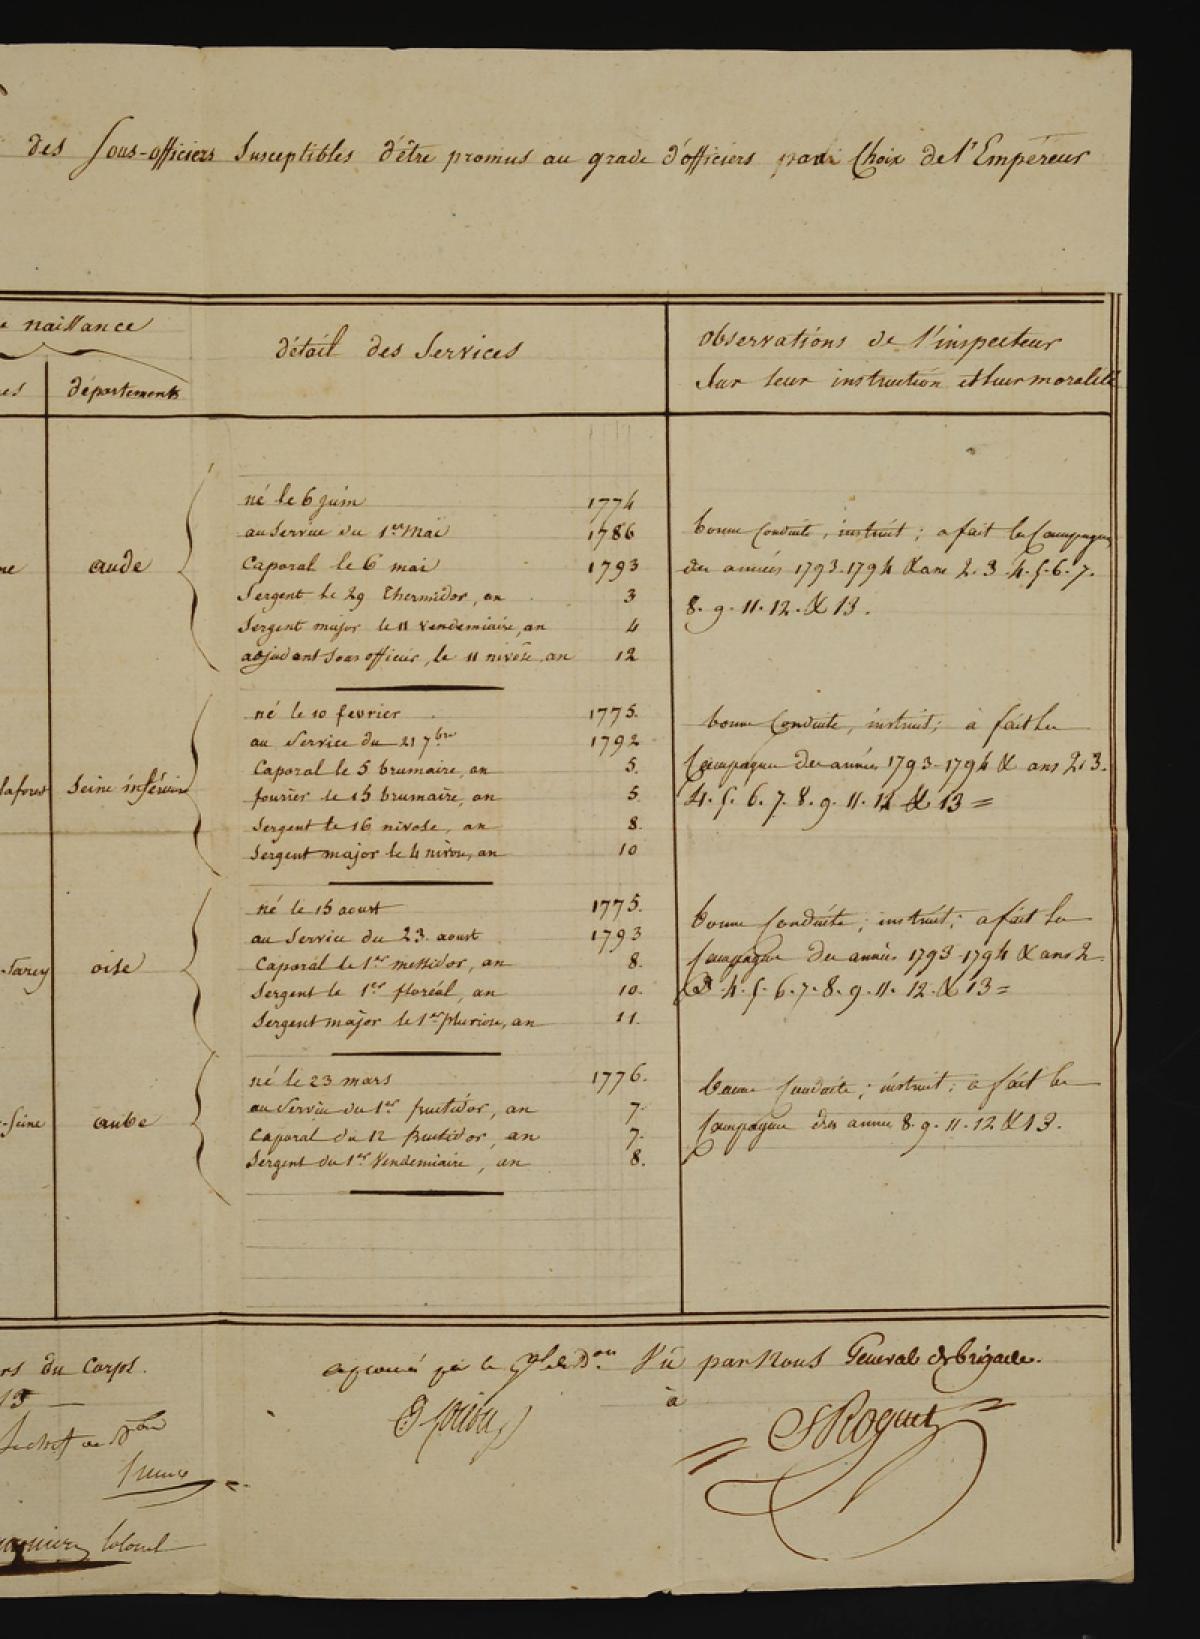 des Sous-officiers Susceptibles d'être promus au grade d'officiers par Choix de l'Empereur
naissance
départements
détail des Services
observations de l'inspecteur
Sur leur instruction et leur moralité
aude
né le 6 juin 1774
au Service du 1er Mai 1786
Caporal le 6 mai 1793
Sergent le 29 Thermidor, an 3
Sergent major le 11 Vendemiaire, an 4
adjudant Sous officier, le 11 nivôse, an 12
bonne Conduite, instruit; a fait les Campagnes
des années 1793-1794 & ans 2. 3. 4. 5. 6. 7.
8. 9. 11. 12. & 13.
laforest
Seine inférieure
né le 10 fevrier 1775.
au Service du 21 7bre 1792
Caporal le 5 brumaire, an 5.
fourier le 15 brumaire, an 5
Sergent le 16 nivose, an 8.
Sergent major le 4 nivose, an 10
bonne Conduite, instruit; a fait les
Campagnes des années 1793-1794 & ans 2. 3.
4. 5. 6. 7. 8. 9. 11. 12 & 13 =
oise
né le 15 aoust 1775.
au Service du 23 aoust 1793
Caporal le 1er messidor, an 8.
Sergent le 1er floréal, an 10.
Sergent major le 1er pluviose, an 11.
bonne Conduite; instruit; a fait les
Campagnes des années 1793-1794 & ans 2
3. 4. 5. 6. 7. 8. 9. 11. 12. & 13 =
-Seine
aube
né le 23 mars 1776.
au Service du 1er fructidor, an 7.
Caporal du 12 fructidor, an 7.
Sergent du 1er Vendemiaire, an 8.
bonne Conduite; instruit; a fait les
Campagnes des années 8. 9. 11. 12 & 13.
du Corps.
13
Vu par Nous Général de brigade.
à
Roguet
Colonel